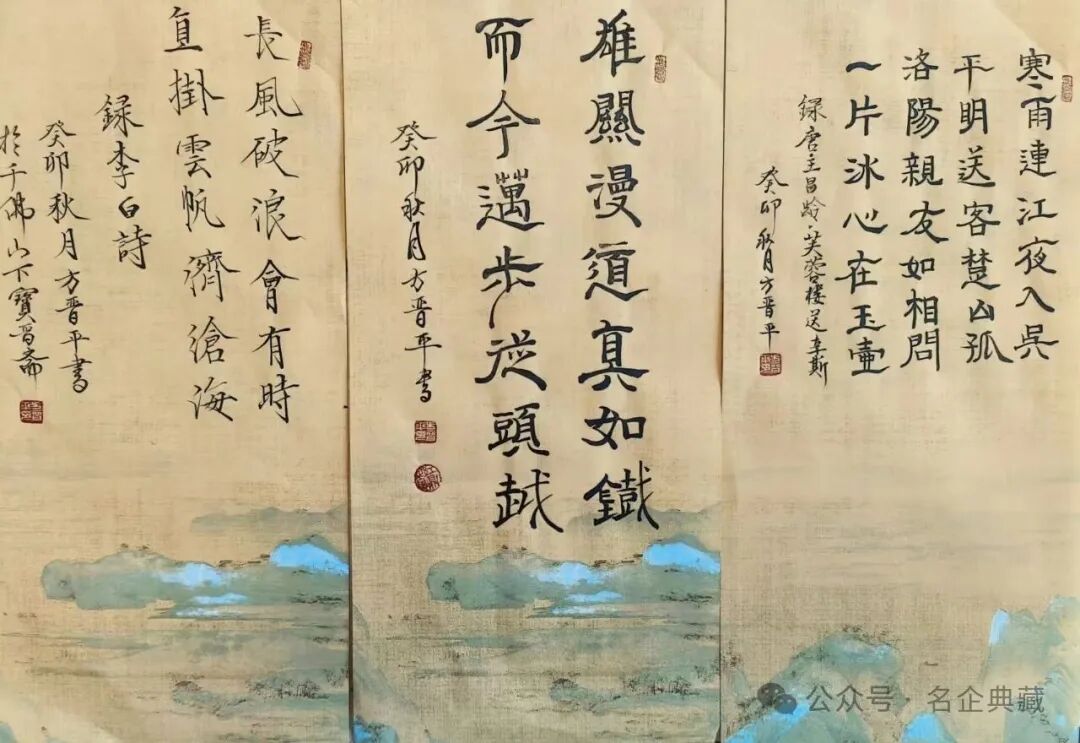 寒雨連江夜入吳
平明送客楚山孤
洛陽親友如相問
一片冰心在玉壺
録唐王昌龄芙蓉楼送辛斯
癸卯秋月方晋平
雄關漫道真如鐵
而今邁步從頭越
癸卯秋月方晋平書
長風破浪會有時
直掛雲帆濟滄海
録李白詩
癸卯秋月方晋平書
於千佛山下寶晋斋
公众号·名企典藏